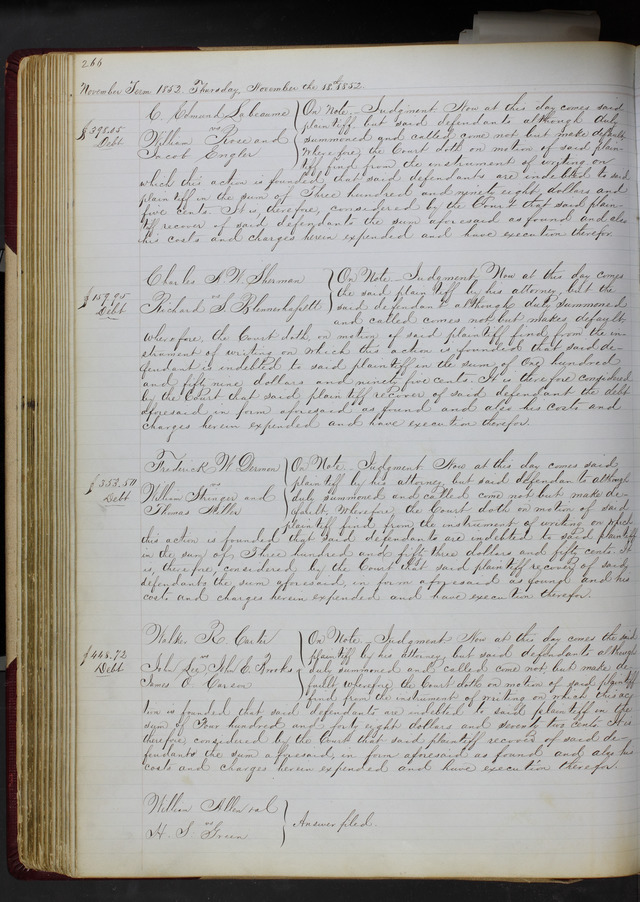 266
November Term 1852. Thursday, November the 18th 1852.
C. Edmund Labeaume
vs
William Rose and
Jacob Engler
$398.05
Debt
On Note – Judgment Now at this day comes said
plaintiff but said defendants although duly
summoned and called come not but make default
Wherefore, the Court doth on motion of said plain-
tiff find from the instrument of writing on
which this action is founded that said defendants are indebted to said
plaintiff in the sum of Three hundred and ninety eight dollars and
five cents. It is, therefore, considered by the Court that said plain-
tiff recover of said defendants the sum aforesaid as found and also
his costs and charges herein expended and have execution therefor
Charles A. W. Sherman
vs
Richard S. Blennerhassett
$159.95
Debt
On Note – Judgment, Now at this day comes
the said plaintiff by his attorney, but the
said defendant although duly summoned
and called comes not but makes default
wherefore, the Court doth, on motion of said plaintiff find, from the in-
strument of writing on which this action is founded that said de-
fendant is indebted to said plaintiff in the sum of One hundred
and fifty nine dollars and ninety five cents. It is therefore considered
by the Court that said plaintiff recover of said defendant the debt
aforesaid in form aforesaid as found and also his costs and
charges herein expended and have execution therefor.
Frederick W.
vs
William Stringer and
Thomas
$353.50
Debt
On Note – Judgment. Now at this day comes said
plaintiff by his attorney, but said defendants although
duly summoned and called come not but make de-
fault, Wherefore, the Court doth on motion of said
plaintiff find from the instrument of writing on which
this action is founded that said defendants are indebted to said plaintiff
in the sum of Three hundred and fifty three dollars and fifty cents. It
is, therefore, considered, by the Court that said plaintiff recover of said
defendants the sum aforesaid, in form aforesaid as found and his
costs and charges herein expended and have execution therefor.
Walker R. Carter
vs
John E. Brooks
James C. Carson
$448.72
Debt
On Note – Judgment Now at this day comes the said
plaintiff by his attorney but said defendants although
duly summoned and called come not but make de-
fault, wherefore the Court doth on motion of said plaintiff
find from the instrument of writing on which this ac-
tion is founded that said defendants are indebted to said plaintiff in the
sum of Four hundred and forty eight dollars and seventy two cents It is
therefore, considered by the Court that said plaintiff recover of said de-
fendants the sum aforesaid, in form aforesaid as found and also his
costs and charges herein expended and have execution therefor.
William Allen
vs
H. S. Green
Answer filed.